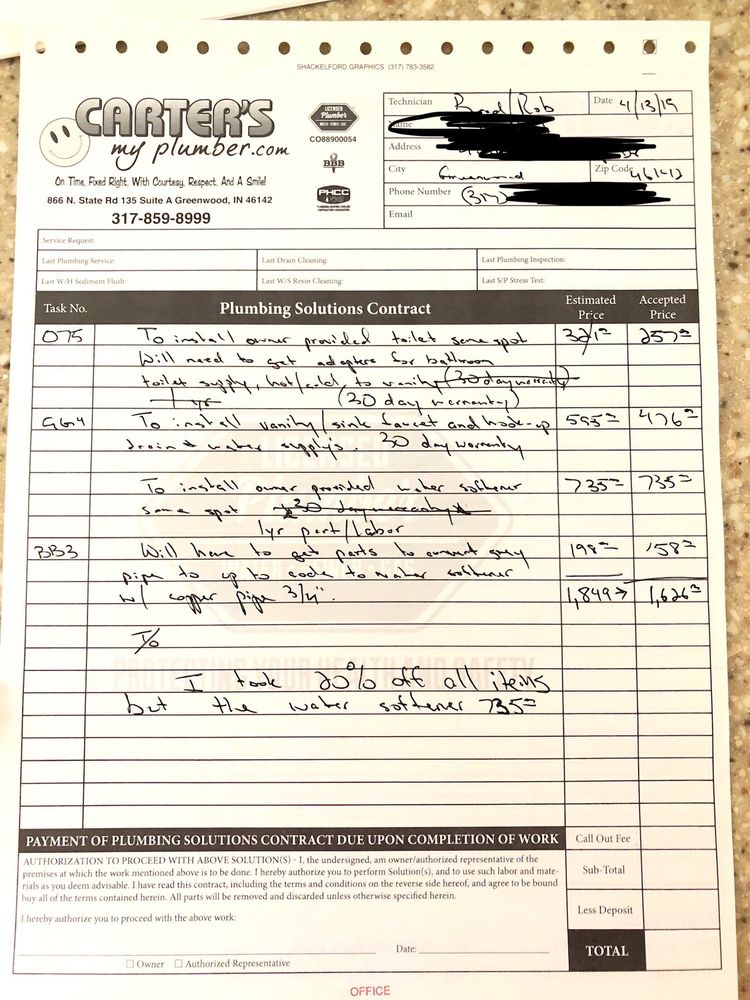 SHACKELFORD GRAPHICS (317) 783-3582
CARTER'S
my plumber.com
On Time, Fixed Right, With Courtesy, Respect, And A Smile!
866 N. State Rd 135 Suite A Greenwood, IN 46142
317-859-8999
LICENSED
Plumber
CO88900054
BBB
PHCC
Technician Brad/Rob Date 4/13/19
Address
City Greenwood Zip Code 46142
Phone Number (317)
Email
Service Request:
Last Plumbing Service: Last Drain Cleaning: Last Plumbing Inspection:
Last W/H Sediment Flush: Last W/S Resin Cleaning: Last S/P Stress Test:
Task No. Plumbing Solutions Contract Estimated Price Accepted Price
O75 To install owner provided toilet same spot 321 257
Will need to get adapters for bathroom
toilet supply, hot/cold, to vanity (30 day warranty)
1 yr (30 day warranty)
To install vanity/sink faucet and hook-up 595 476
drain & water supply's. 30 day warranty
To install owner provided water softener 735 735
same spot 30 day warranty
1yr part/labor
BB3 Will have to get parts to convert grey 198 158
pipe to up to code to water softener
w/ copper pipe 3/4". 1,849 1,626
I took 20% off all items
but the water softener 735
PAYMENT OF PLUMBING SOLUTIONS CONTRACT DUE UPON COMPLETION OF WORK Call Out Fee
AUTHORIZATION TO PROCEED WITH ABOVE SOLUTION(S) - I, the undersigned, am owner/authorized representative of the
premises at which the work mentioned above is to be done. I hereby authorize you to perform Solution(s), and to use such labor and mate-
rials as you deem advisable. I have read this contract, including the terms and conditions on the reverse side hereof, and agree to be bound
buy all of the terms contained herein. All parts will be removed and discarded unless otherwise specified herein.
Sub-Total
Less Deposit
I hereby authorize you to proceed with the above work:
TOTAL
Date:
Owner Authorized Representative
OFFICE